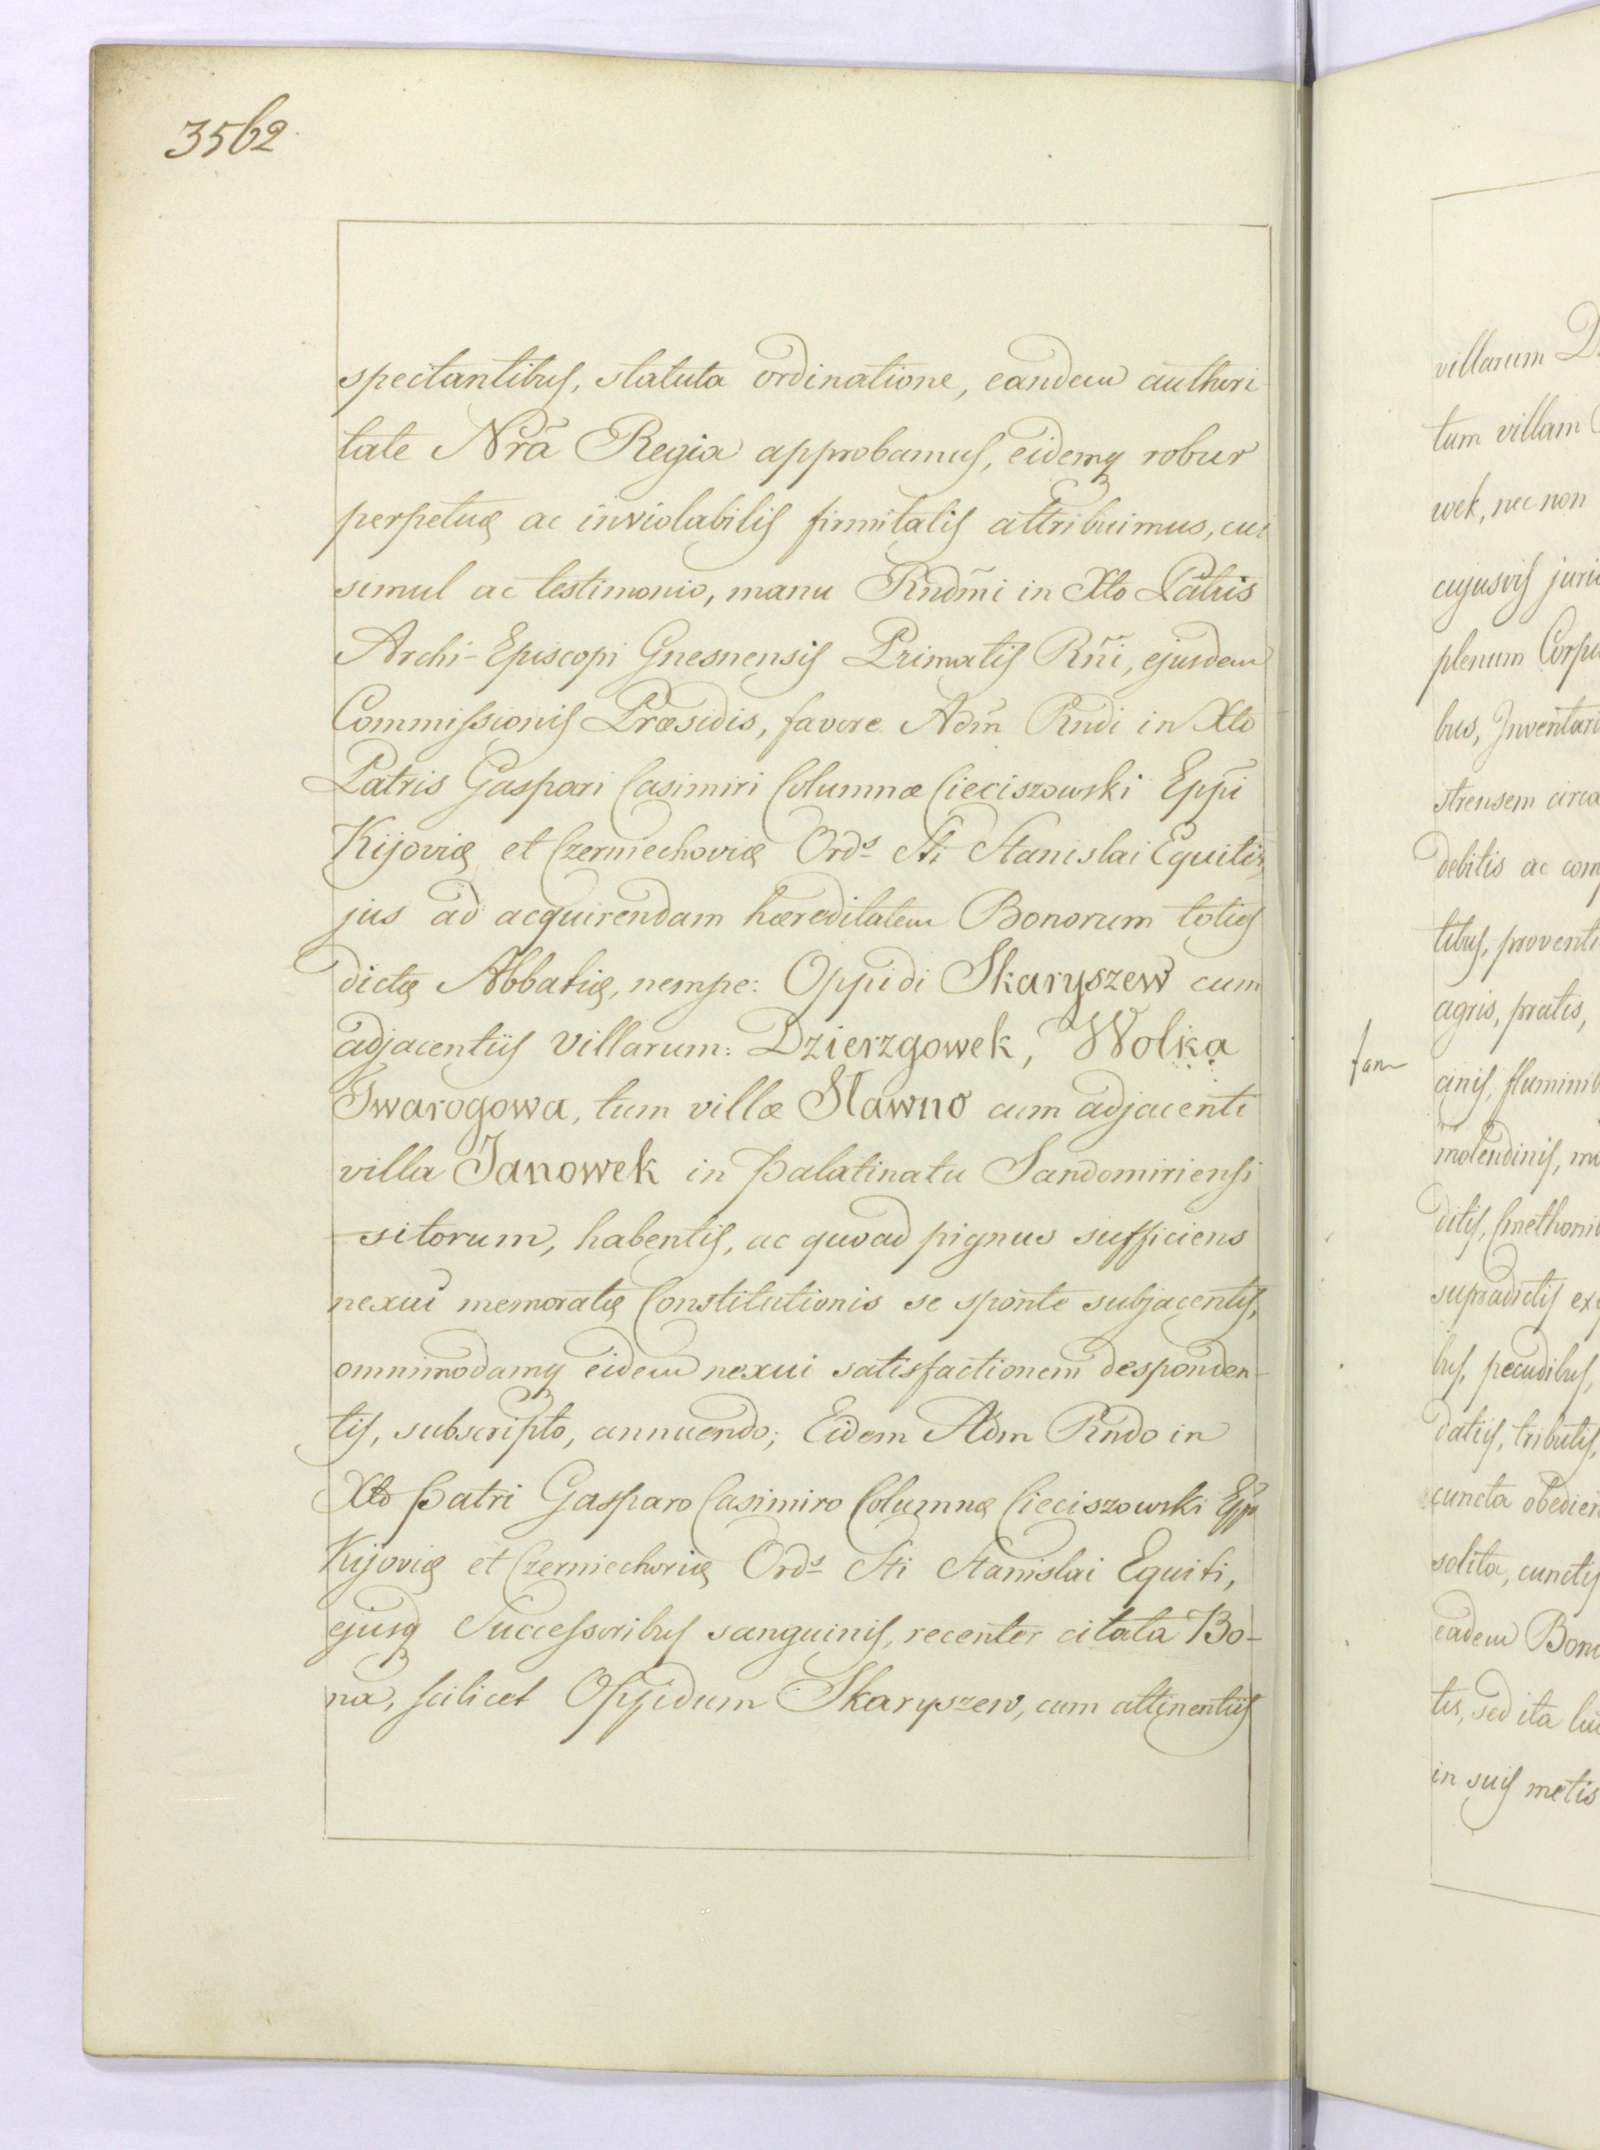 3562
spectantibus, statuta ordinatione, eandem authori
tate Nrã Regia approbamus, eidemq robur
perpetuę ac inviolabilis firmitatis attribuimus, cui
simul ac testimonio, manu Rndm̃i in Xto Patris
Archi-Episcopi Gnesnensis Primatis Rñi, ejusdem
Commissionis Præsidis, favore Adm̃ Rndi in Xto
Patris Gaspari Casimiri Columnæ Cieciszowski Epp̃i
Kijovię et Czerniechovię Ords Sti Stanislai Equitis,
jus ad acquirendam hæreditatem Bonorum toties
dictę Abbatię, nempe: Oppidi Skaryszew cum
adjacentiis villarum: Dzierzgowek, Wolka
Twarogowa, tum villæ Sławno cum adjacenti
villa Janowek in Palatinatu Sandomiriensi
sitorum, habentis, ac quoad pignus sufficiens
nexui memoratę Constitutionis se sponte subjacentis,
omnimodamq eidem nexui satisfactionem desponden-
tis, subscripto, annuendo; Eidem Adm Rndo in
Xto Patri Gasparo Casimiro Columnę Cieciszowski Epp
Kijovię et Czerniechovię Ords Sti Stanislai Equiti,
ejusq Successoribus sanguinis, recenter citata Bo-
na, scilicet Oppidum Skaryszew, cum attinentiis
villarum
tum villam
wek, nec non
cujusvis juri
plenum Corpu
bus, Inventari
strensem circa
debitis ac com
tibus, proventi
agris, pratis,
fam
cinis, fluminib
molendinis, mu
ditis, Cmethonib
supradictis ex
bus, pecudibus,
datiis, tributis,
cuncta obedien
solita, cunctis
eadem Bono
tis, sed ita
in suis metis